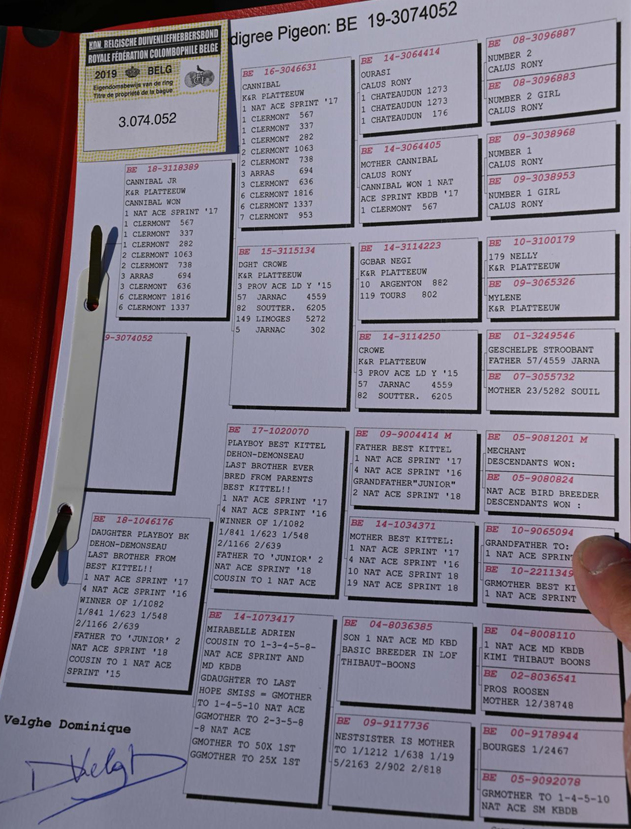 digree Pigeon: BE 19-3074052
KON. BELGISCHE DUIVENLIEFHEBBERSBOND
ROYALE FÉDÉRATION COLOMBOPHILE BELGE
2019 BELG
Eigendomsbewijs van de ring
Titre de propriété de la bague
3.074.052
BE 18-3118389
CANNIBAL JR
K&R PLATTEEUW
CANNIBAL WON
1 NAT ACE SPRINT '17
1 CLERMONT 567
1 CLERMONT 337
1 CLERMONT 282
2 CLERMONT 1063
2 CLERMONT 738
3 ARRAS 694
3 CLERMONT 636
6 CLERMONT 1816
6 CLERMONT 1337
9-3074052
BE 18-1046176
DAUGHTER PLAYBOY BK
DEHON-DEMONSEAU
LAST BROTHER FROM
BEST KITTEL!!
1 NAT ACE SPRINT '17
4 NAT ACE SPRINT '16
WINNER OF 1/1082
1/841 1/623 1/548
2/1166 2/639
FATHER TO 'JUNIOR' 2
NAT ACE SPRINT '18
COUSIN TO 1 NAT ACE
SPRINT '15
Velghe Dominique
BE 16-3046631
CANNIBAL
K&R PLATTEEUW
1 NAT ACE SPRINT '17
1 CLERMONT 567
1 CLERMONT 337
1 CLERMONT 282
2 CLERMONT 1063
2 CLERMONT 738
3 ARRAS 694
3 CLERMONT 636
6 CLERMONT 1816
6 CLERMONT 1337
7 CLERMONT 953
BE 15-3115134
DGHT CROWE
K&R PLATTEEUW
3 PROV ACE LD Y '15
57 JARNAC 4559
82 SOUTTER. 6205
149 LIMOGES 5272
5 JARNAC 302
BE 17-1020070
PLAYBOY BEST KITTEL
DEHON-DEMONSEAU
LAST BROTHER EVER
BRED FROM PARENTS
BEST KITTEL!!
1 NAT ACE SPRINT '17
4 NAT ACE SPRINT '16
WINNER OF 1/1082
1/841 1/623 1/548
2/1166 2/639
FATHER TO 'JUNIOR' 2
NAT ACE SPRINT '18
COUSIN TO 1 NAT ACE
BE 14-1073417
MIRABELLE ADRIEN
COUSIN TO 1-3-4-5-8-
NAT ACE SPRINT AND
MD KBDB
GDAUGHTER TO LAST
HOPE SMISS = GMOTHER
TO 1-4-5-10 NAT ACE
GGMOTHER TO 2-3-5-8
-8 NAT ACE
GMOTHER TO 50X 1ST
GGMOTHER TO 25X 1ST
BE 14-3064414
OURASI
CALUS RONY
1 CHATEAUDUN 1273
1 CHATEAUDUN 1273
1 CHATEAUDUN 176
BE 14-3064405
MOTHER CANNIBAL
CALUS RONY
CANNIBAL WON 1 NAT
ACE SPRINT KBDB '17
1 CLERMONT 567
BE 14-3114223
GOBAR NEGI
K&R PLATTEEUW
10 ARGENTON 882
119 TOURS 802
BE 14-3114250
CROWE
K&R PLATTEEUW
3 PROV ACE LD Y '15
57 JARNAC 4559
82 SOUTTER. 6205
BE 09-9004414 M
FATHER BEST KITTEL
1 NAT ACE SPRINT '17
4 NAT ACE SPRINT '16
GRANDFATHER"JUNIOR"
2 NAT ACE SPRINT '18
BE 14-1034371
MOTHER BEST KITTEL:
1 NAT ACE SPRINT '17
4 NAT ACE SPRINT '16
10 NAT ACE SPRINT 18
19 NAT ACE SPRINT 18
BE 04-8036385
SON 1 NAT ACE MD KBD
BASIC BREEDER IN LOF
THIBAUT-BOONS
BE 09-9117736
NESTSISTER IS MOTHER
TO 1/1212 1/638 1/19
5/2163 2/902 2/818
BE 08-3096887
NUMBER 2
CALUS RONY
BE 08-3096883
NUMBER 2 GIRL
CALUS RONY
BE 09-3038968
NUMBER 1
CALUS RONY
BE 09-3038953
NUMBER 1 GIRL
CALUS RONY
BE 10-3100179
179 NELLY
K&R PLATTEEUW
BE 09-3065326
MYLENE
K&R PLATTEEUW
BE 01-3249546
GESCHELPE STROOBANT
FATHER 57/4559 JARNA
BE 07-3055732
MOTHER 23/5282 SOUIL
BE 05-9081201 M
MECHANT
DESCENDANTS WON:
BE 05-9080824
NAT ACE BIRD BREEDER
DESCENDANTS WON :
BE 10-9065094
GRANDFATHER TO:
1 NAT ACE SPRINT
BE 10-2211349
GRMOTHER BEST KI
1 NAT ACE SPRINT
BE 04-8008110
1 NAT ACE MD KBDB
KIMI THIBAUT BOONS
BE 02-8036541
PROS ROOSEN
MOTHER 12/38748
BE 00-9178944
BOURGES 1/2467
BE 05-9092078
GRMOTHER TO 1-4-5-10
NAT ACE SM KBDB